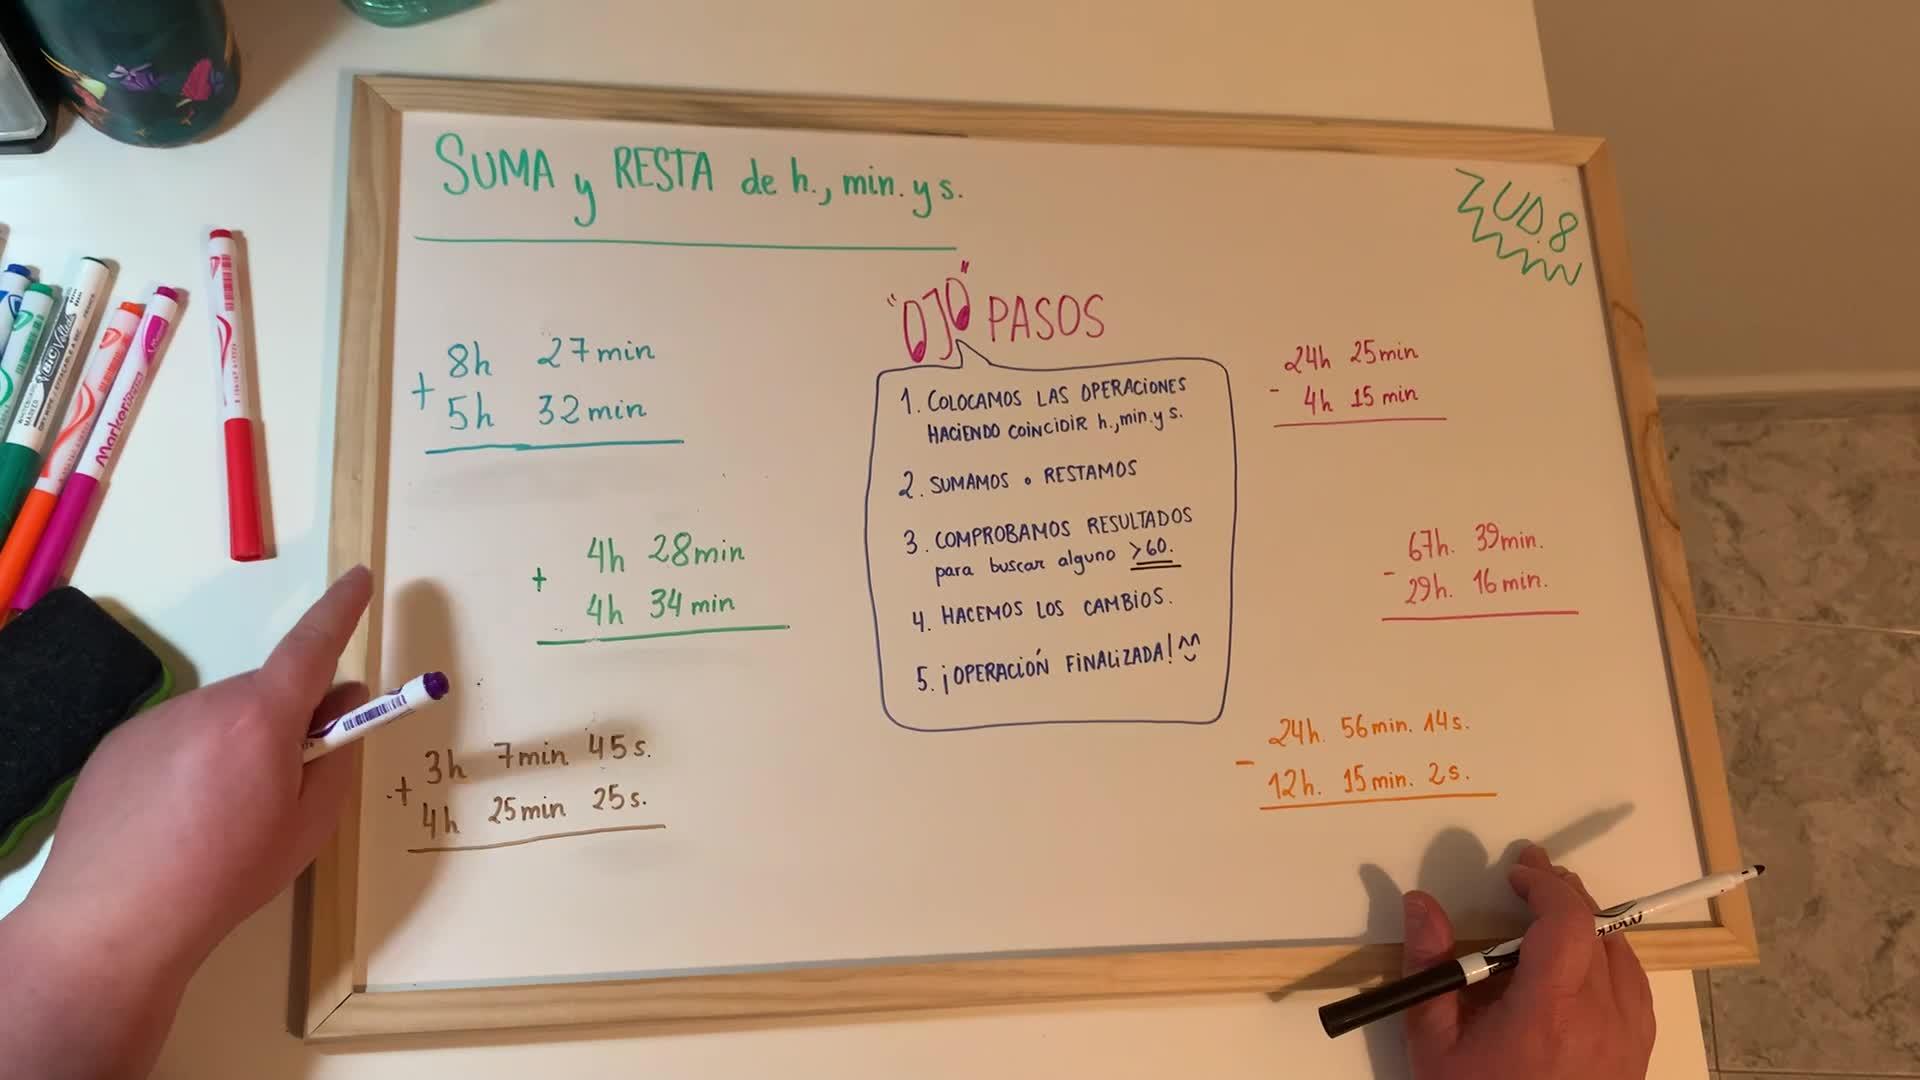 SUMA y RESTA de h., min. y s.
UD.8
8h 27min
+
5h 32min
4h 28min
+
4h 34min
3h 7min 45s.
+
4h 25min 25s.
"OJO" PASOS
1. COLOCAMOS LAS OPERACIONES
HACIENDO COINCIDIR h., min. y s.
2. SUMAMOS o RESTAMOS
3. COMPROBAMOS RESULTADOS
para buscar alguno >60.
4. HACEMOS LOS CAMBIOS.
5. ¡OPERACIÓN FINALIZADA!
24h 25min
-
4h 15min
67h. 39min.
-
29h. 16min.
24h. 56min. 14s.
-
12h. 15min. 2s.
BIC Velleda
Marker
Mark